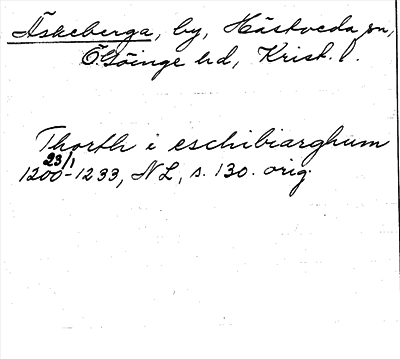 Äskeberga, by, Hästveda sn,
Ö. Göinge hd, Krist. l.
Thorth i eschibiarghum
23/1
1200-1233, NL, s. 130. orig.